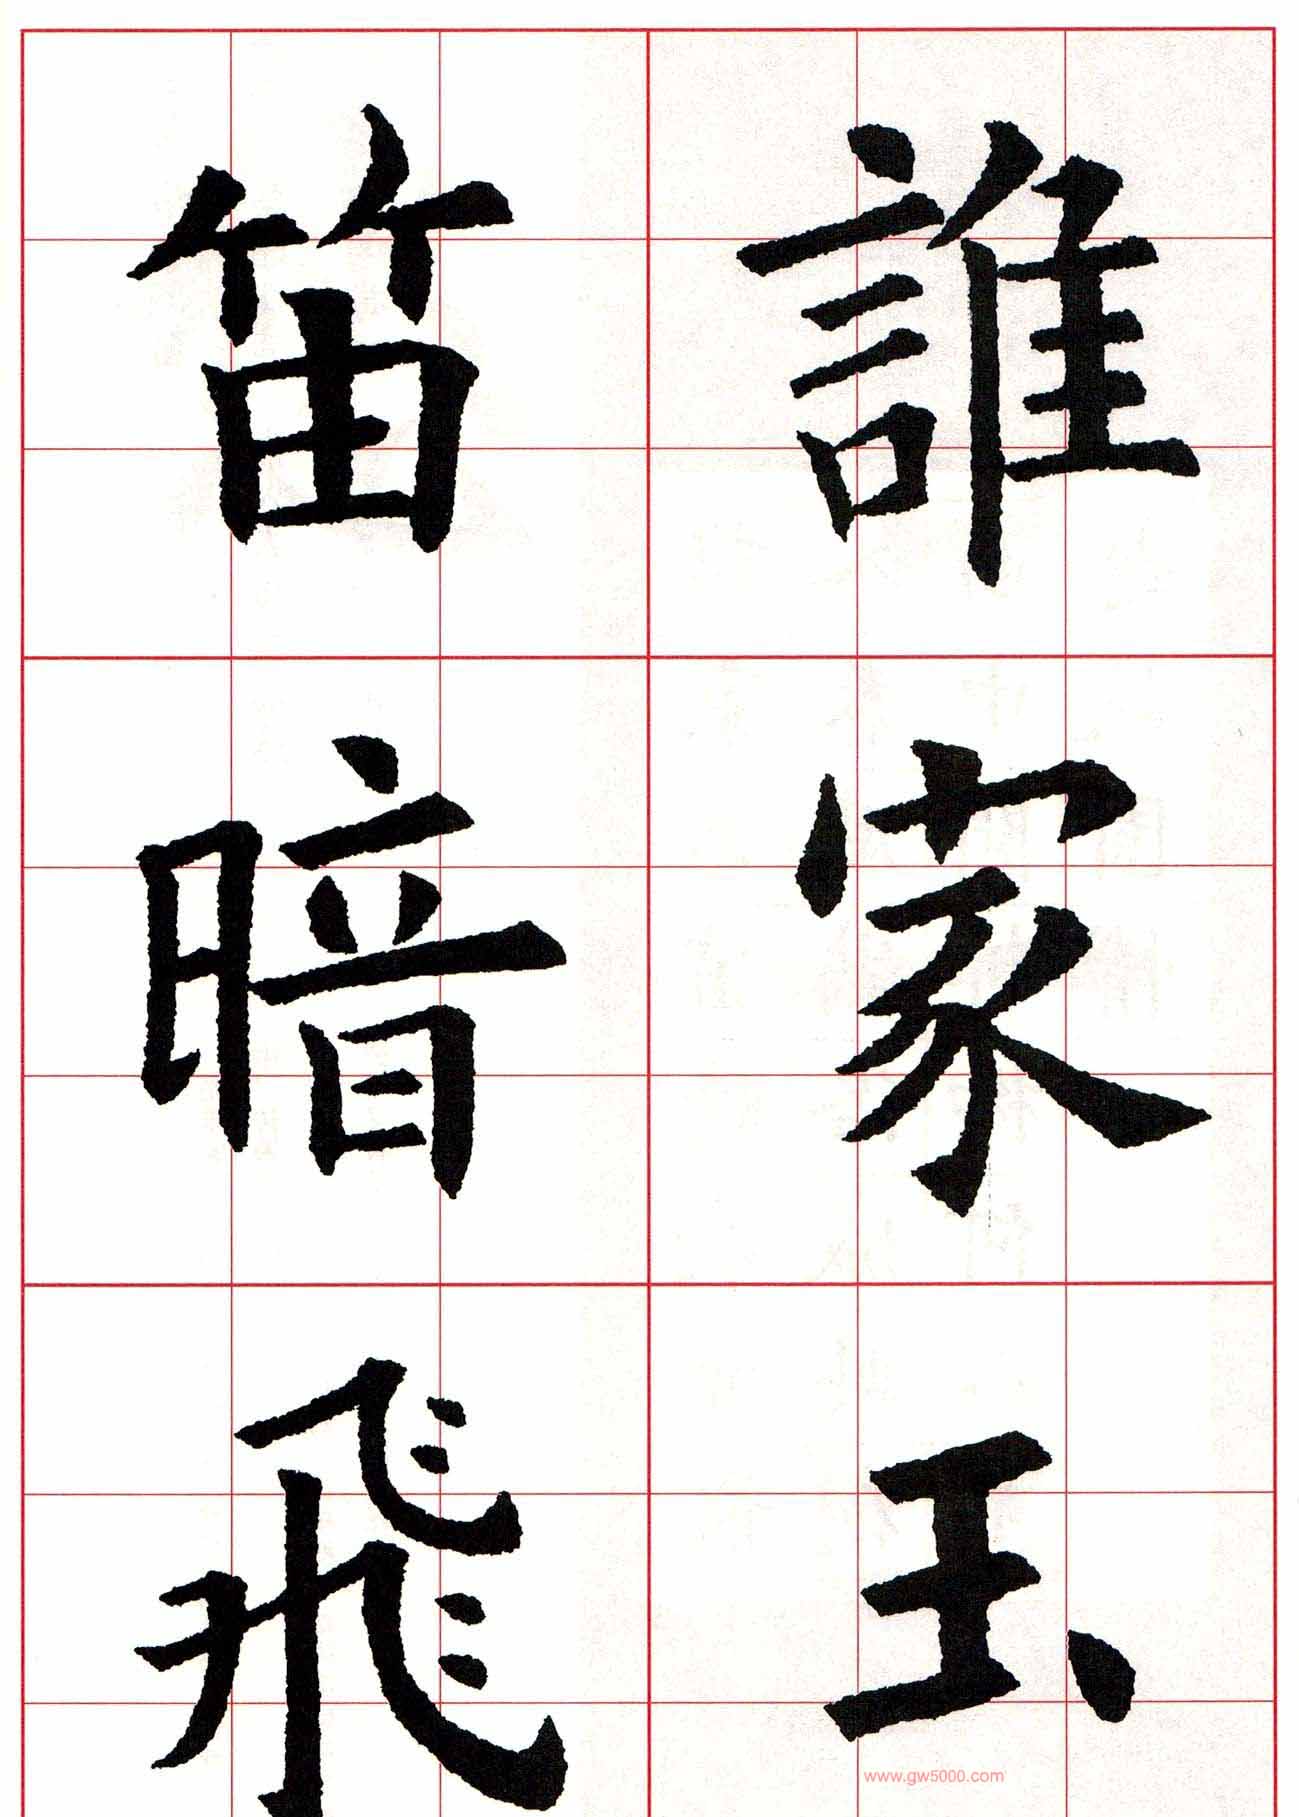 誰家玉
笛暗飛
www.gw5000.com